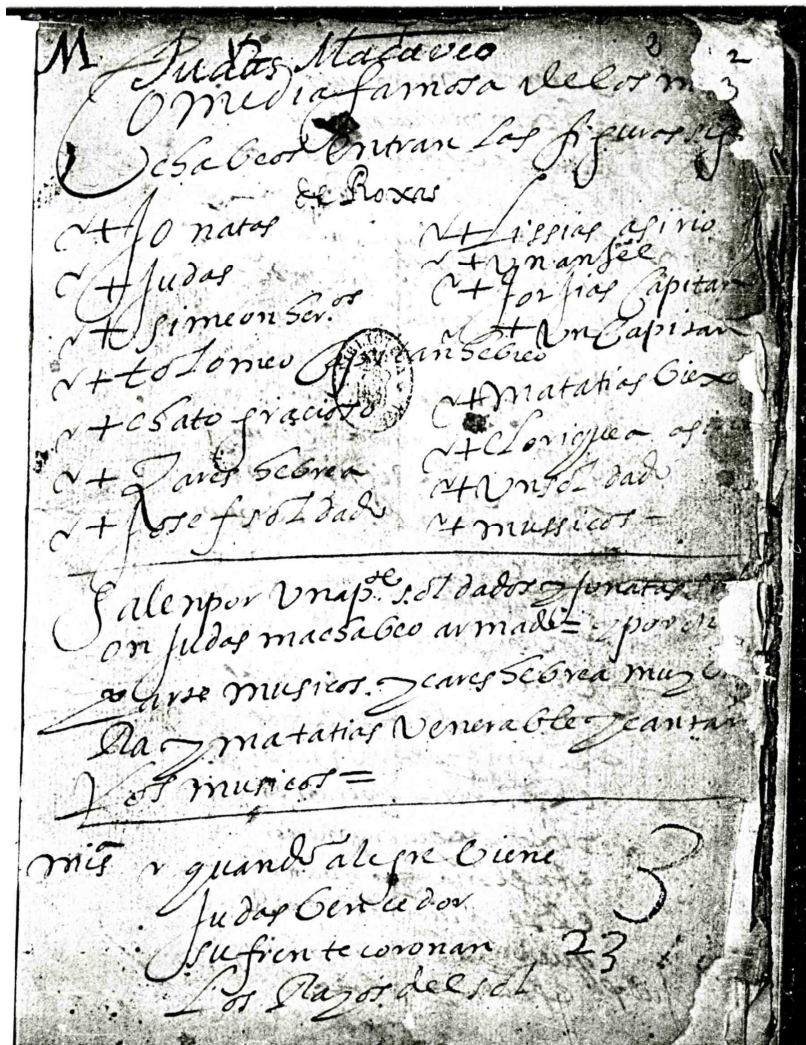 M Judas Macaveo 2 2
Comedia famosa de los m 3
chabeos Entran las figuras sig
de Roxas
+ Jonatas
+ Judas
+ simeon her.os
+ tolomeo Capitan hebreo
+ chato gracioso
+ Zares hebrea
+ Josef soldado
+ Lissias asirio
+ Un anjel
+ Jorjias Capitan
+ Un Capitan
+ matatias biexo
+ Cloriquea asiri
+ Un soldado
+ mussicos =
Salen por una p.te soldados y Jonatas
on Judas machabeo armado = y por
parte musicos. y cares hebrea muy b
lla y matatias Venerable y cantan
Los musicos =
mus quando alegre biene 3
Judas bencedor
su frente coronan 23
Los Rayos del sol